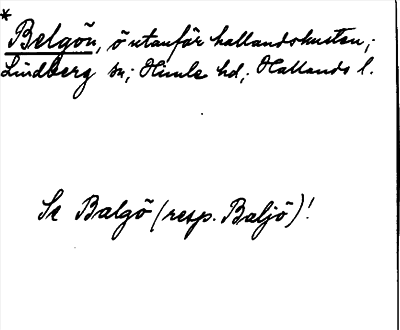 *
Belgön, ö utanför hallandskusten;
Lindberg sn; Himle hd; Hallands l.
Se Balgö (resp. Baljö)!